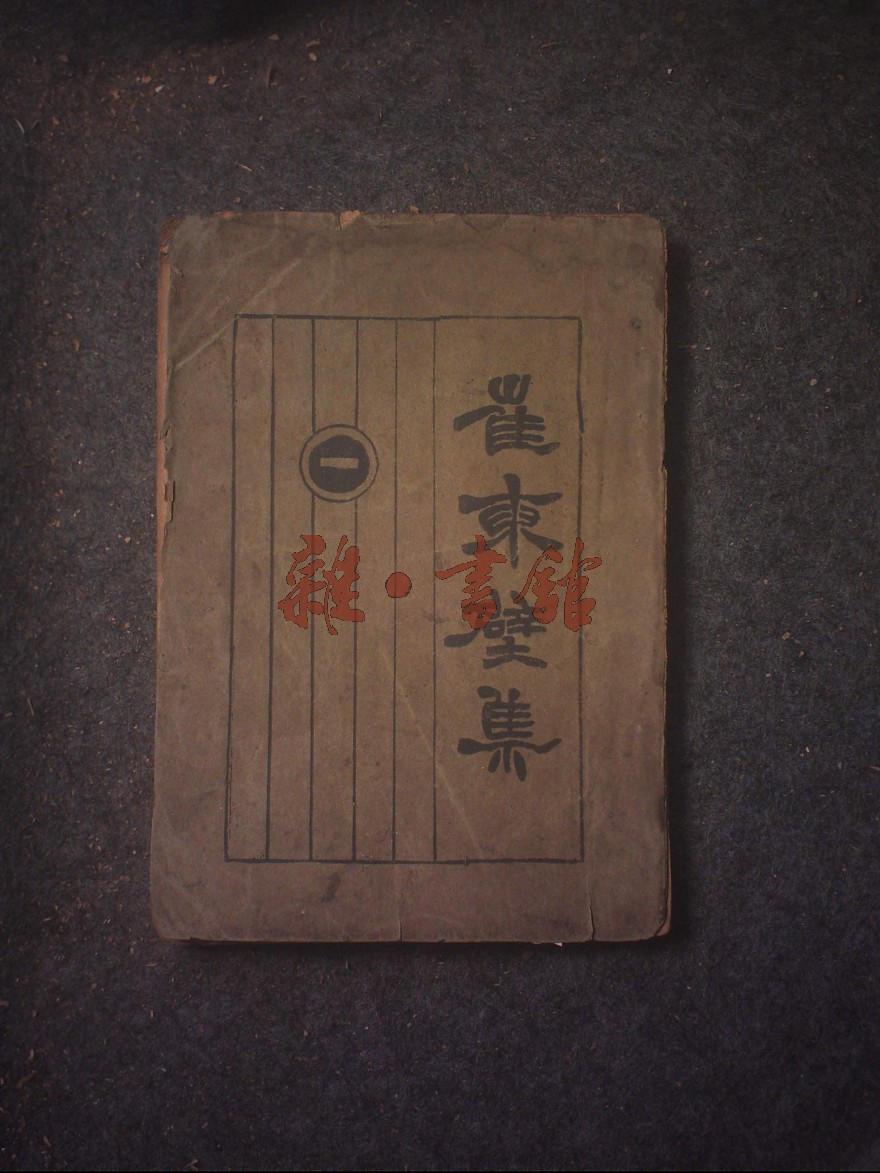 崔東壁集
一
雜·書館